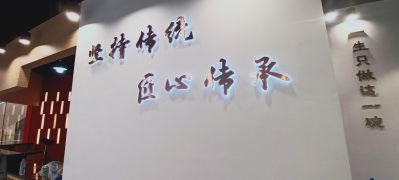 坚持传统
匠心传承
一生只做这一碗